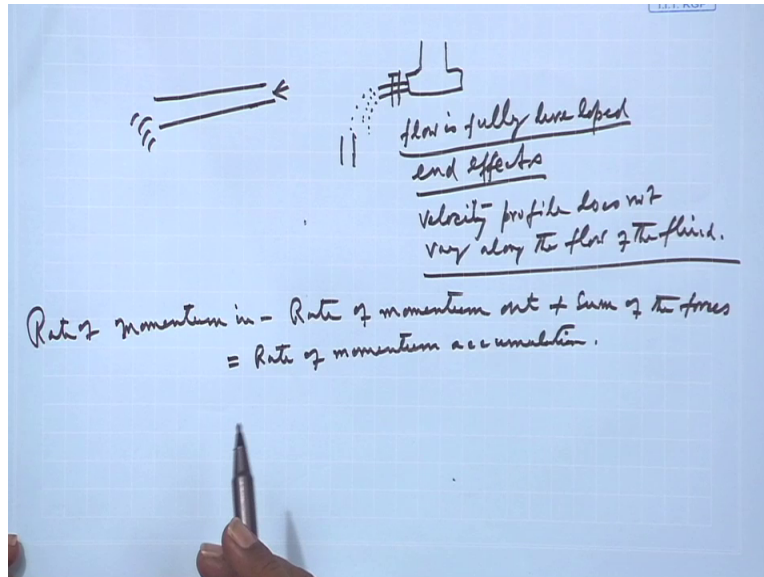 I.I.T. KGP
flow is fully developed
end effects
velocity profile does not
vary along the flow of the fluid.
Rate of momentum in - Rate of momentum out + Sum of the forces
= Rate of momentum accumulation.